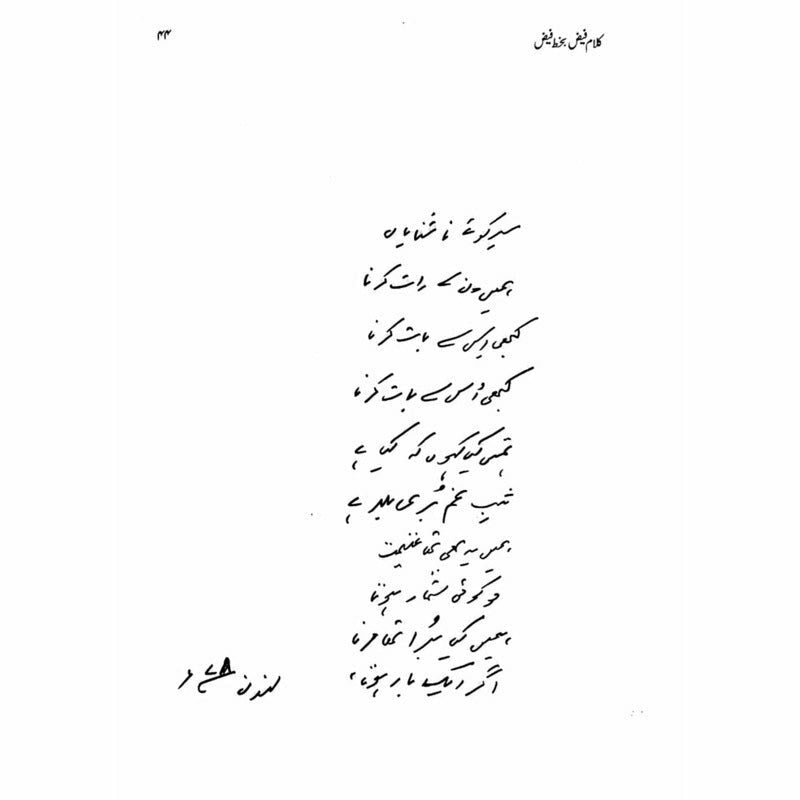 کلام فیض بخط فیض
۴۴
سرِ کوئے ناشنایاں
ہمیں دن سے رات کرنا
کبھی اِس سے بات کرنا
کبھی اُس سے بات کرنا
تمہیں کیا کہوں کہ کیا ہے
شبِ غم بُری بلا ہے
ہمیں یہ بھی تھا غنیمت
جو کوئی شمار ہوتا
ہمیں کیا بُرا تھا مرنا
اگر ایک بار ہوتا،
لندن ۷۸ء